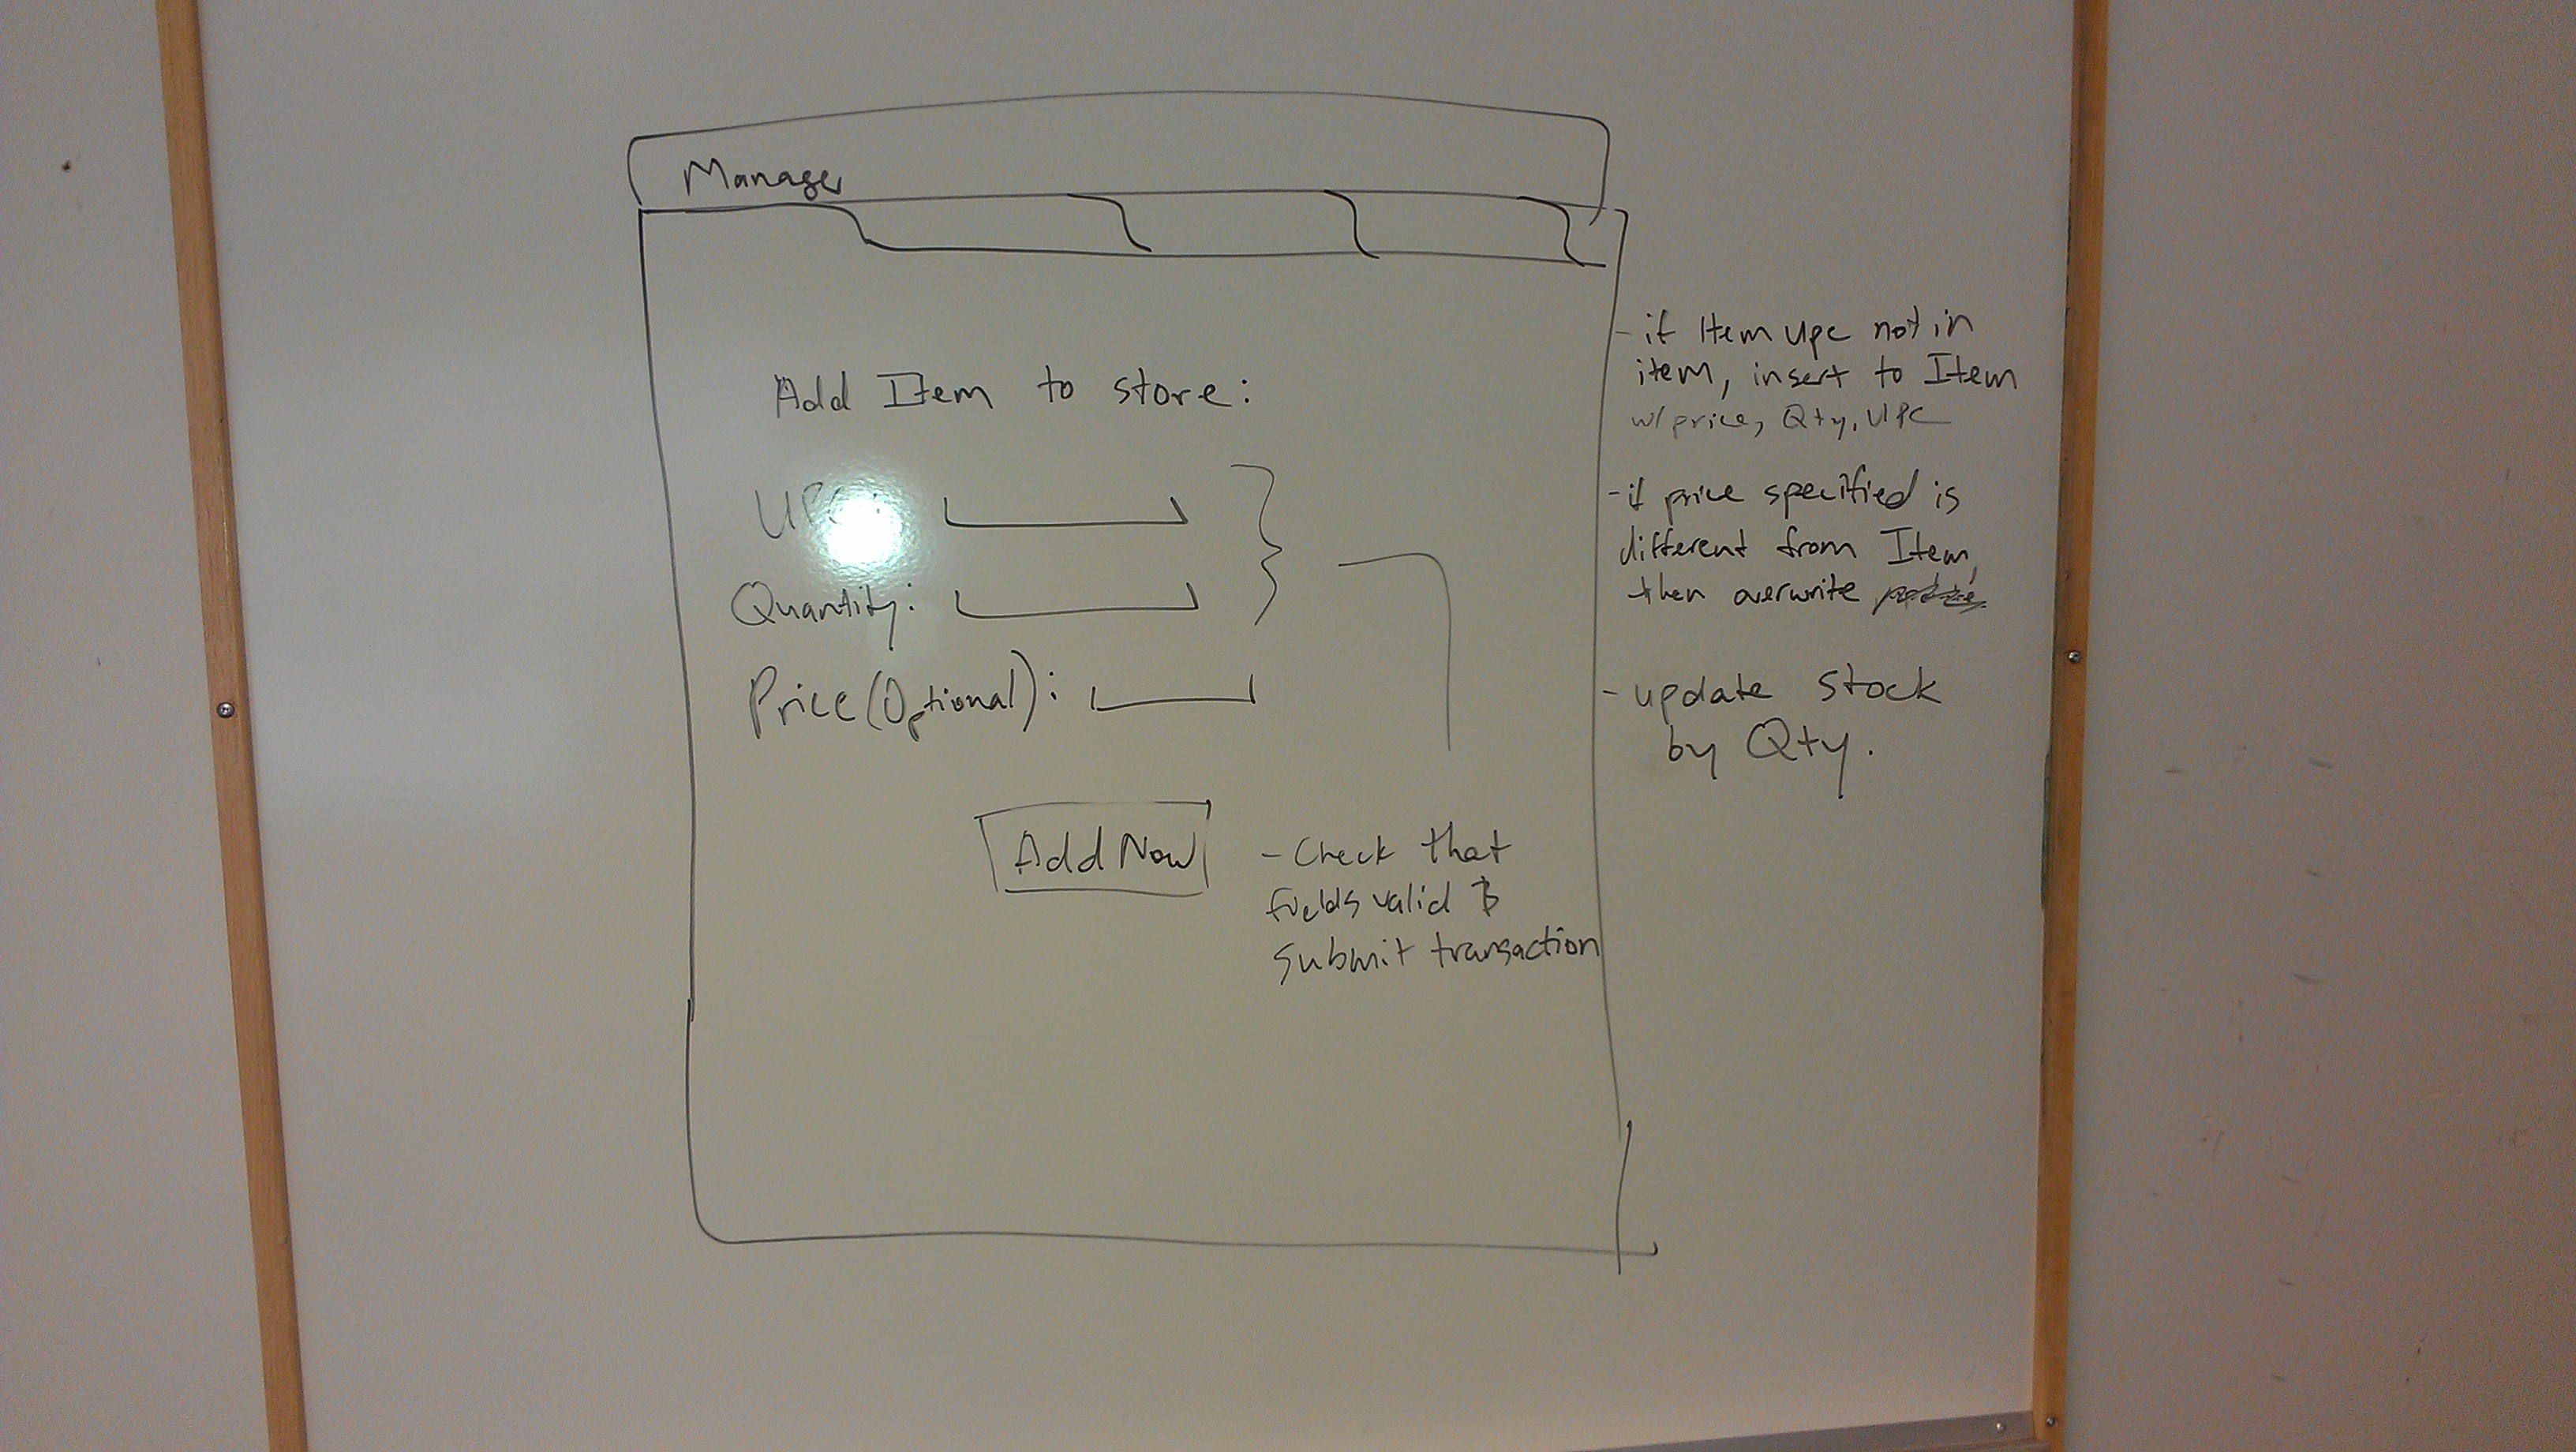 Manager
Add Item to store:
UPC:
Quantity:
Price (Optional):
Add Now
- Check that
fields valid &
submit transaction
- if Item upc not in
item, insert to Item
w/ price, Qty, UPC
- if price specified is
different from Item,
then overwrite
- update stock
by Qty.